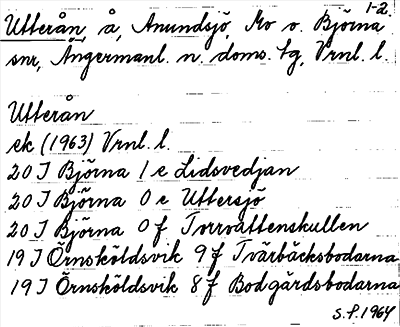 1-2.
Utterån, å, Anundsjö, Mo o. Björna
snr, Ångermanl. n. doms. tg, Vrnl. l.
Utterån
ek (1963) Vrnl. l.
20 I Björna 1 e Lidsvedjan
20 I Björna 0 e Uttersjö
20 I Björna 0 f Torrvattenskullen
19 I Örnsköldsvik 9 f Tvärbäcksbodarna
19 I Örnsköldsvik 8 f Bodgårdsbodarna
S.F. 1964